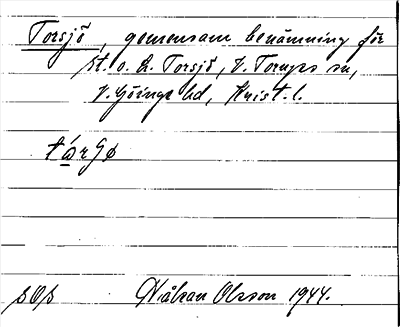 Torsjö, gemensam benämning för
St. o. L. Torsjö, V. Torups sn,
V. Göinge hd, Krist. l.
tórgø
SOS Håkan Olsson 1944.